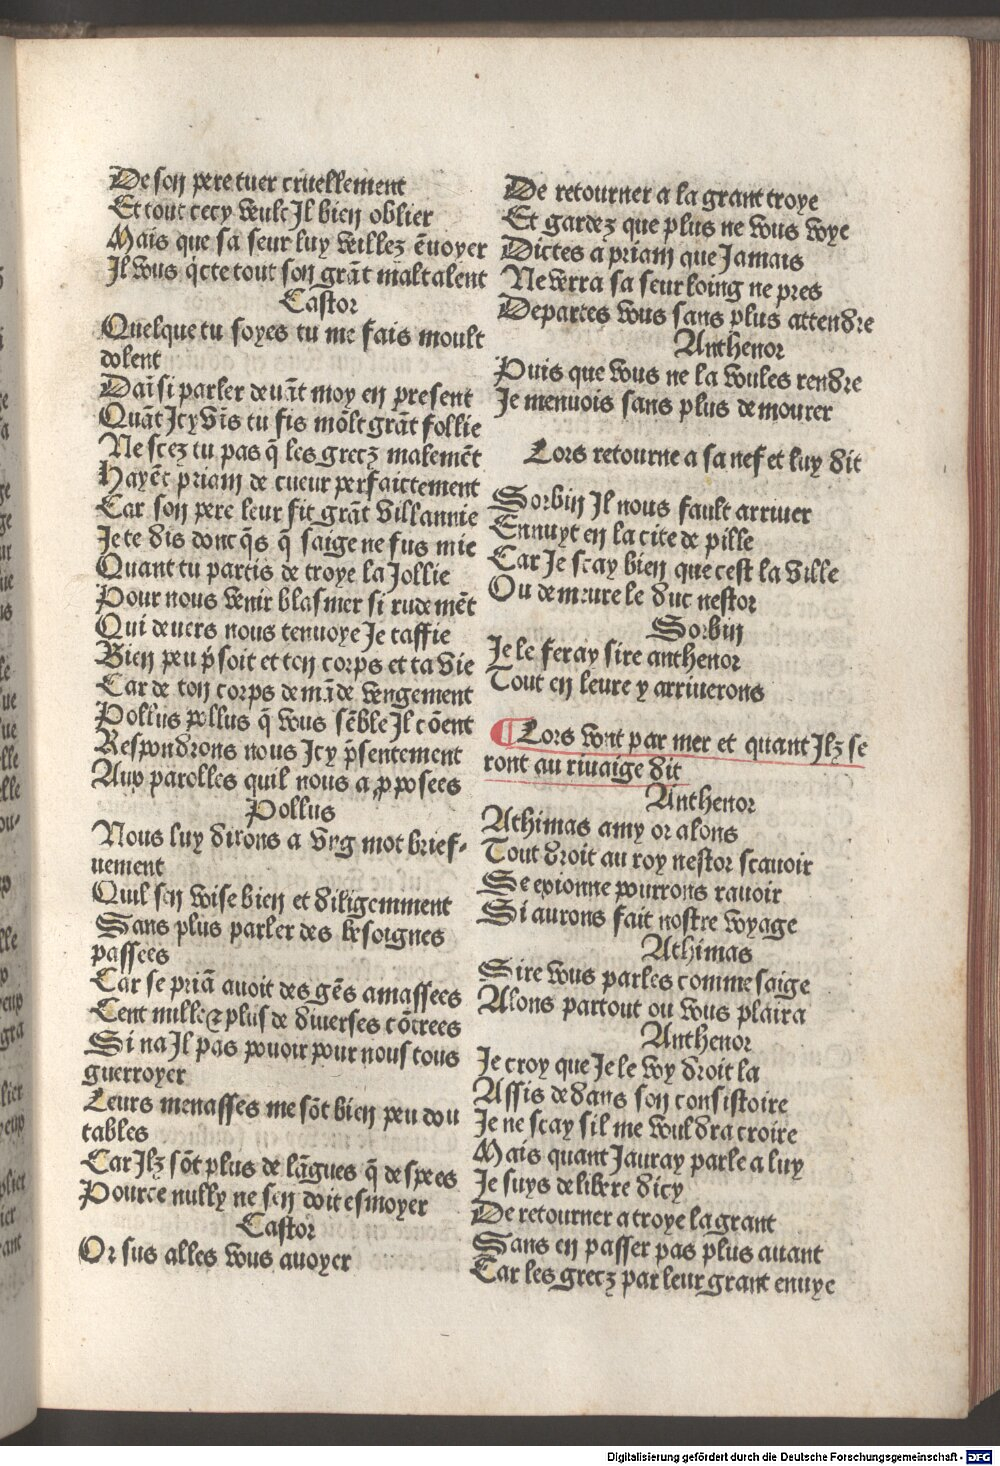 De son pere tuer cruellement
Et tout cecy veult Jl bien oblier
Mais que sa seur luy veillez ēuoyer
Jl vous q̇cte tout son grāt maltalent
Castor
Quelque tu soyes tu me fais moult
dolent
Daīsi parler deuāt moy en present
Quāt Jcy vīs tu fis mōlt grāt follie
Ne scez tu pas q̄ les grecz malemēt
Hayēt priam de cueur perfaictement
Car son pere leur fit grāt villannie
Je te dis donc q̄s q̄ saige ne fus mie
Quant tu partis de troye la Jollie
Pour nous venir blasmer si rudemēt
Qui deuers nous tenuoye Je taffie
Bien peu p̄soit et ton corps et ta vie
Car de ton corps demāde vengement
Pollus pollus q̄ vous sēble Jl cōent
Respondrons nous Jcy p̄sentement
Aux parolles quil nous a ꝓposees
Pollus
Nous luy dirons a vng mot brief-
uement
Quil sen voise bien et diligemment
Sans plus parler des besoignes
passees
Car se priā auoit des gēs amassees
Cent mille ⁊ plus de diuerses cōtrees
Si na Jl pas pouoir pour nous tous
guerroyer
Leurs menasses me sōt bien peu dou
tables
Car Jlz sōt plus de lāgues q̄ despees
Pource nully ne sen doit esmoyer
Castor
Or sus alles vous auoyer
De retourner a la grant troye
Et gardez que plus ne vous voye
Dictes a priam que Jamais
Ne verra sa seur loing ne pres
Departes vous sans plus attendre
Anthenor
Puis que vous ne la voules rendre
Je menuois sans plus demourer
Lors retourne a sa nef et luy dit
Sorbin Jl nous fault arriuer
Ennuyt en la cite de pille
Car Je scay bien que cest la ville
Ou demeure le duc nestor
Sorbin
Je le feray sire anthenor
Tout en leure y arriuerons
¶ Lors vont par mer et quant Jlz se
ront au riuaige dit
Anthenor
Athimas amy or alons
Tout droit au roy nestor scauoir
Se exionne pourrons rauoir
Si aurons fait nostre voyage
Athimas
Sire vous parles comme saige
Alons partout ou vous plaira
Anthenor
Je croy que Je le voy droit la
Assis dedans son consistoire
Je ne scay sil me vouldra croire
Mais quant Jauray parle a luy
Je suys delibere dicy
De retourner a troye la grant
Sans en passer pas plus auant
Car les grecz par leur grant enuye
Digitalisierung gefördert durch die Deutsche Forschungsgemeinschaft - DFG